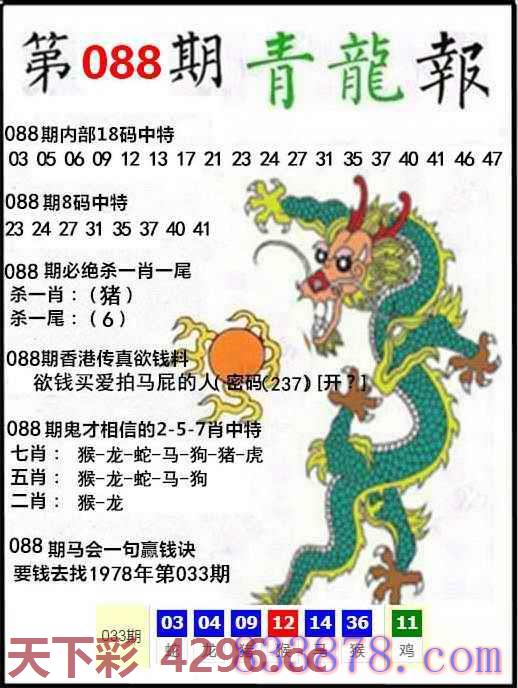 第088期青龍報
088期内部18码中特
03 05 06 09 12 13 17 21 23 24 27 31 35 37 40 41 46 47
088期8码中特
23 24 27 31 35 37 40 41
088 期必绝杀一肖一尾
杀一肖：（猪）
杀一尾：（6）
088期香港传真欲钱料
欲钱买爱拍马屁的人(密码(237)[开？]
088期鬼才相信的2-5-7肖中特
七肖： 猴-龙-蛇-马-狗-猪-虎
五肖： 猴-龙-蛇-马-狗
二肖： 猴-龙
088 期马会一句赢钱诀
要钱去找1978年第033期
033期 03 04 09 12 14 36 11
蛇 龙 猴 猴 鸡
天下彩 4296.cc